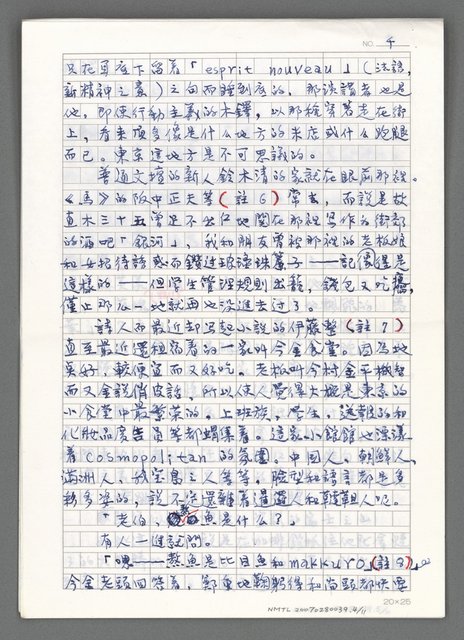 NO. 4
只在耳座下留着「esprit nouveau」（法語，
新精神之義）之向而睡到底的。那該讀者也是
他。即使行動主義的木鐸，以那檢察若走在街
上，看来頂多像是什么地方的米店或什么跑腿
而已。東京這地方是不可思議的。
普通文壇的新人鈴木清的家就在眼前那裡。
《馬》的阪中正夫等（註6）常去，而說是故
直木三十五曾足不出戶地関在那裡寫作的街部
的酒吧「銀河」，我和朋友曾被那裡的老板娘
和女招待誘惑而鑽進玻璃珠簾子——記得還是
這樣的——但學生管理規則出籠，錢包又吃緊，
僅止那么一地就再也没進去过了。
詩人而最近却写起小說的伊藤整（註7）
直至最近還租宿着的一家叫今金食堂。因為地
点好、較便宜而又好吃。老板叫今村金平機智
而又全說俏皮話，所以使人覺得大概是東京的
小食堂中最繁榮的。上班族、學生、送報的和
化妝品廣告員等都蝟集着。這家小餐館也漂漾
着cosmopolitan的氛圍。中國人、朝鮮人、
滿洲人、我宝島之人等等，臉型和語言都是多
種多姿的，說不定還雜着暹邏人和韃靼人呢。
「老伯，煮魚是什么？」
有人一進就問。
「嗯——煮魚是比目魚和makkuro」（註8）
今金老頭回答着，鄭重地鞠躬得和尚頭都快要
20×25
NMTL 20070280039 4/11